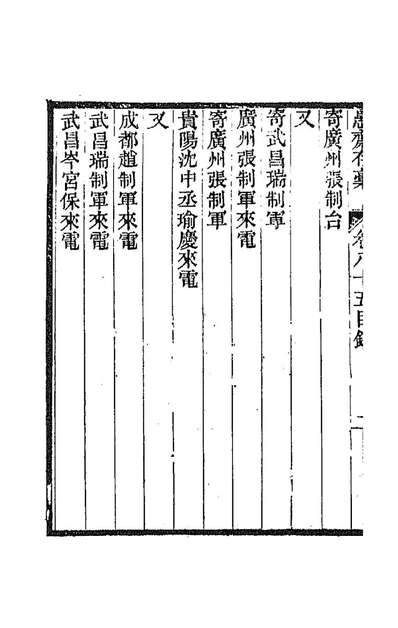 愚齋存稾 卷八十五目錄 二
寄廣州張制台
又
寄武昌瑞制軍
廣州張制軍來電
寄廣州張制軍
貴陽沈中丞瑜慶來電
又
成都趙制軍來電
武昌瑞制軍來電
武昌岑宮保來電